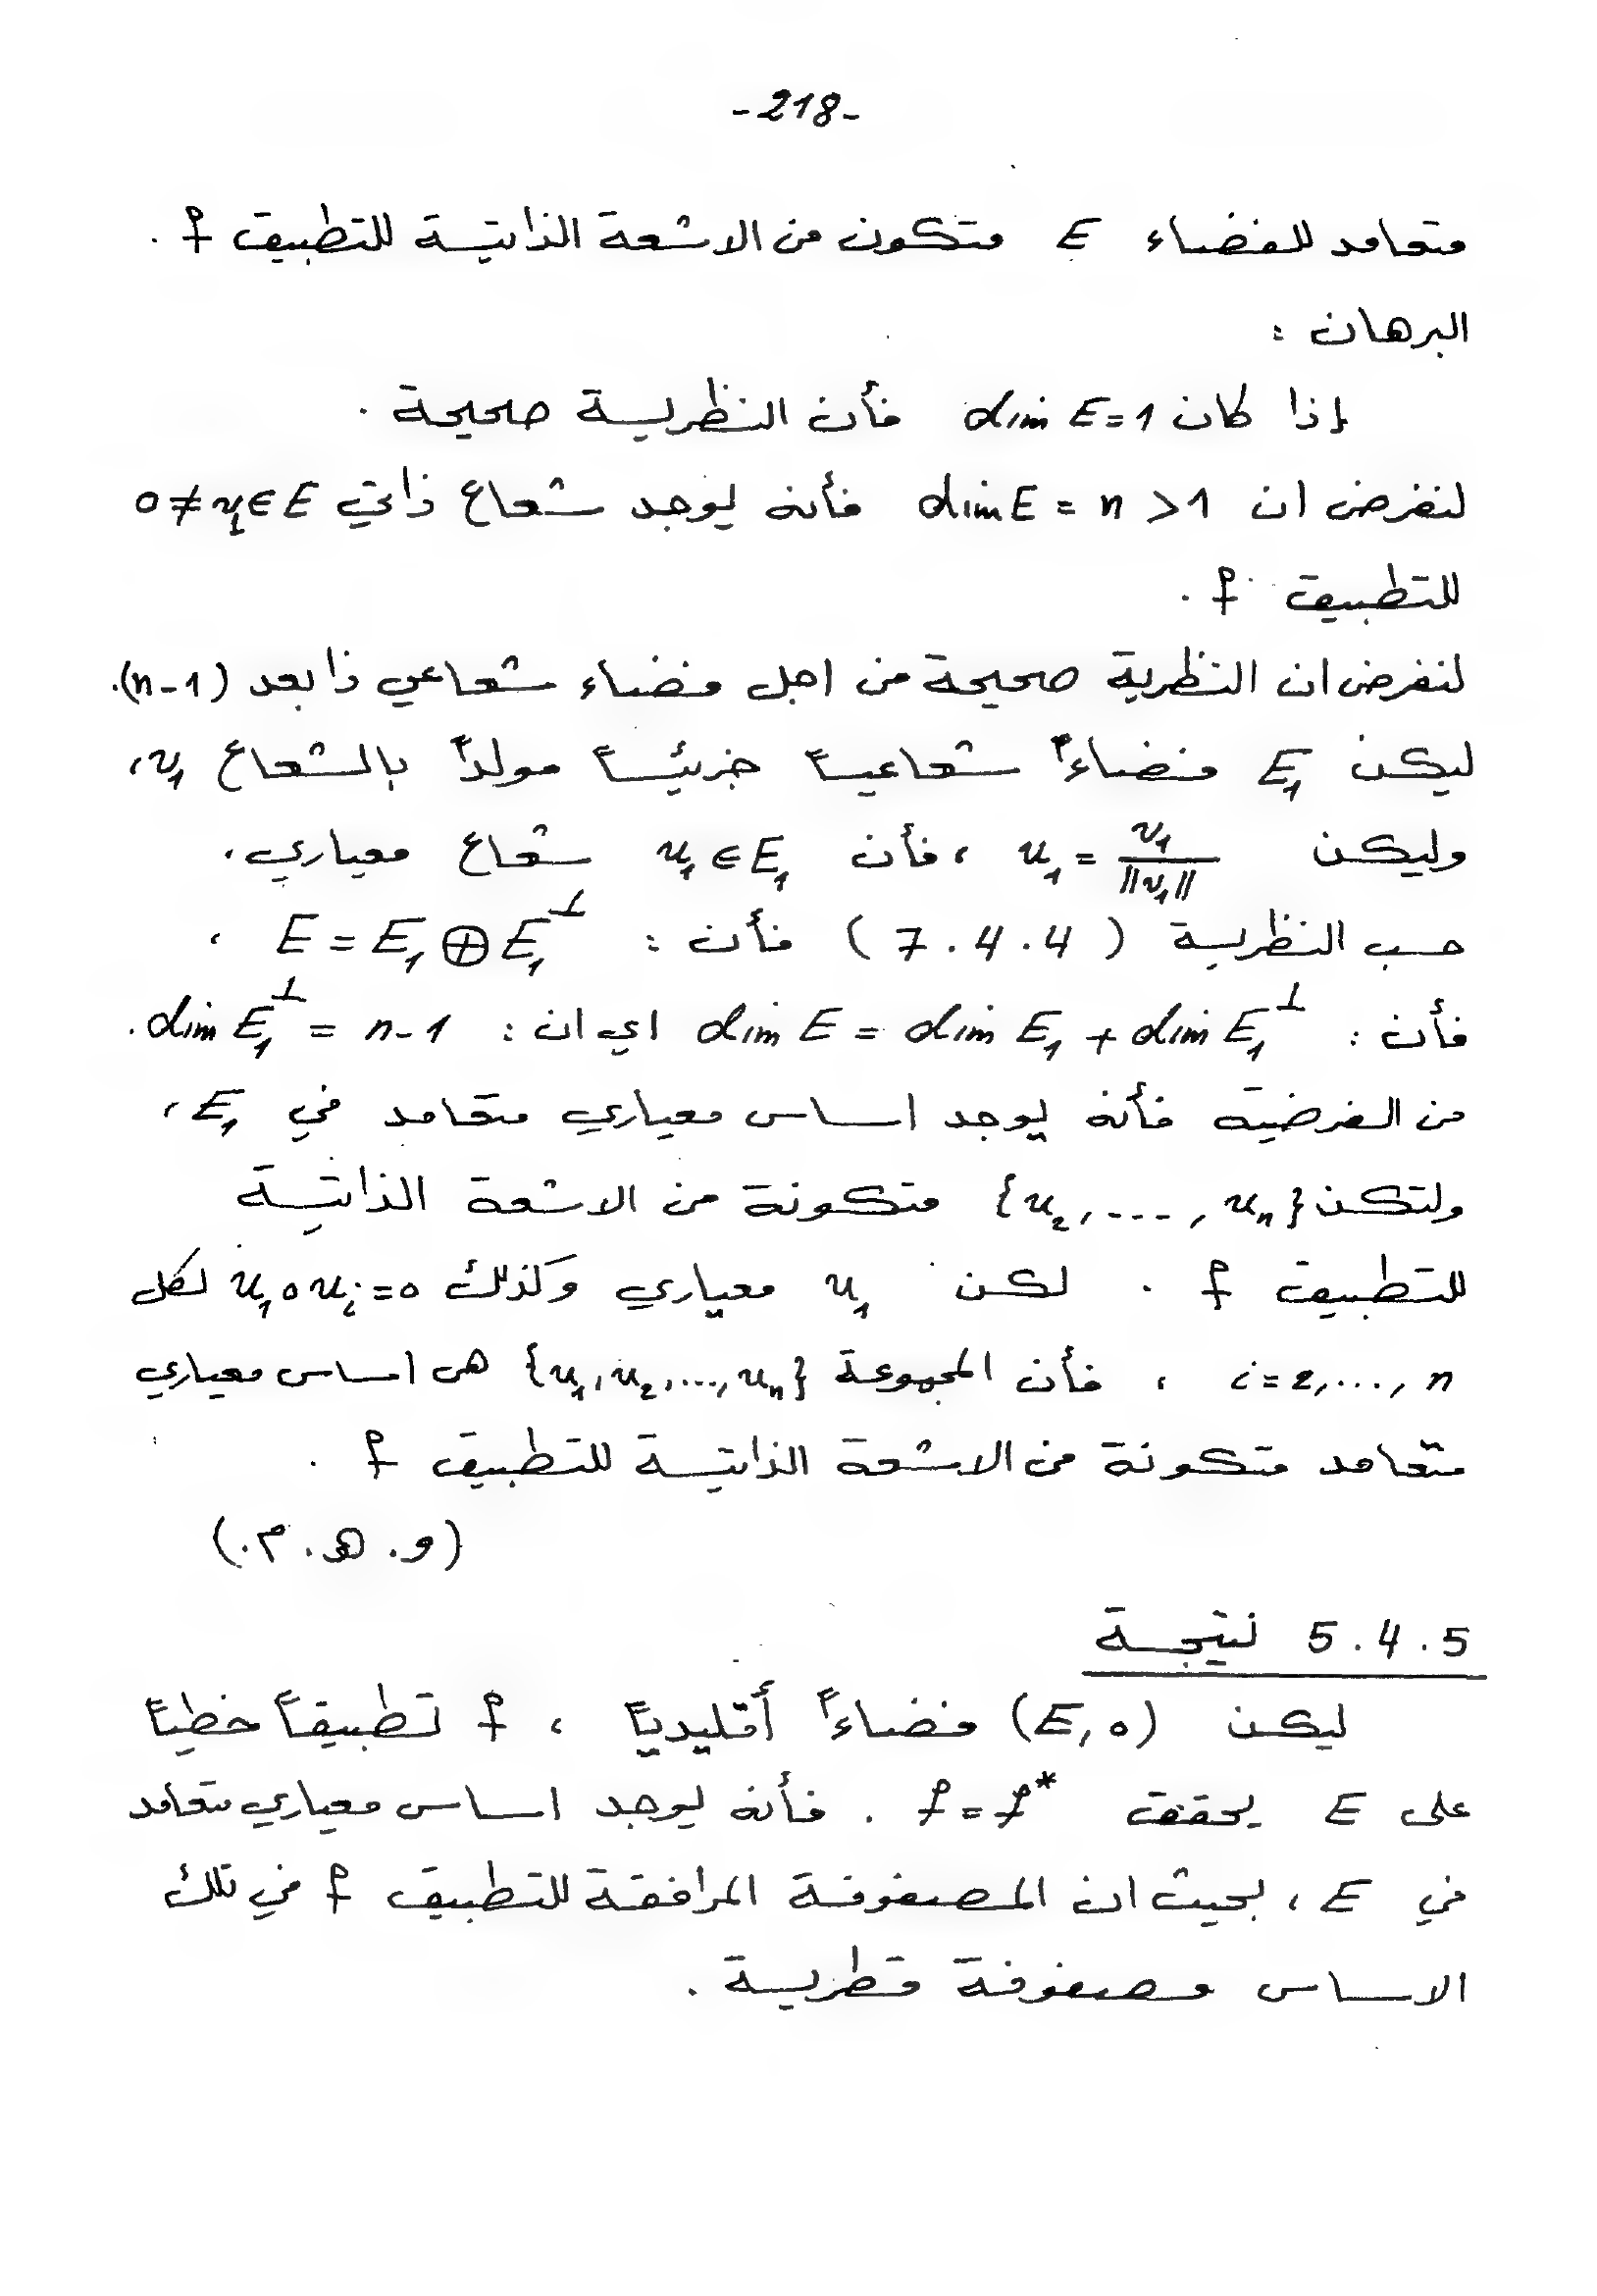 -218-
متعامد للفضاء E متكون من الاشعة الذاتية للتطبيق f .
البرهان :
إذا كان dim E = 1 فأن النظرية صحيحة .
لنفرض ان dim E = n > 1 فأنه يوجد شعاع ذاتي 0 ≠ v₁ ∈ E
للتطبيق f .
لنفرض ان النظرية صحيحة من اجل فضاء شعاعي ذا بعد (n-1).
ليكن E₁ فضاءاً شعاعياً جزئياً مولداً بالشعاع v₁ ،
وليكن u₁ = v₁/‖v₁‖ ، فأن u₁ ∈ E₁ شعاع معياري ،
حسب النظرية ( 7.4.4 ) فأن : E = E₁ ⊕ E₁^⊥ ،
فأن : dim E = dim E₁ + dim E₁^⊥ اي ان : dim E₁^⊥ = n-1 .
من الفرضية فأنه يوجد اساس معياري متعامد في E₁ ،
ولتكن {u₂, ..., uₙ} متكونة من الاشعة الذاتية
للتطبيق f . لكن u₁ معياري وكذلك u₁ ∘ uᵢ = 0 لكل
i = 2, ..., n ، فأن المجموعة {u₁, u₂, ..., uₙ} هي اساس معياري
متعامد متكونة من الاشعة الذاتية للتطبيق f .
(و. هـ. م.)
5.4.5 نتيجة
ليكن (E, ∘) فضاءاً أقليدياً ، f تطبيقاً خطياً
على E يحقق f = f* . فأنه يوجد اساس معياري متعامد
في E ، بحيث ان المصفوفة المرافقة للتطبيق f في تلك
الاساس مصفوفة قطرية .